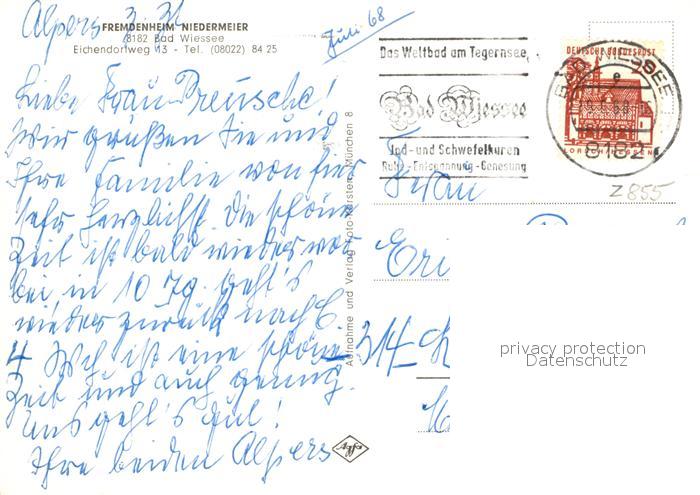 Alpers 3. Zt
FREMDENHEIM NIEDERMEIER
8182 Bad Wiessee
Eichendorfweg 13 - Tel. (08022) 84 25
Juli 68
Liebe Frau Preusche!
Wir grüßen Sie und
Ihre Familie von hier
sehr herzlichst. Die schöne
Zeit ist bald wieder vor
bei, in 10 Tg. geht's
wieder zurück nach C.
4 Wch ist eine schöne
Zeit und auch genug.
Uns geht's gut!
Ihre beiden Alpers
Aufnahme und Verlag Foto Karsten, München 8
Agfa
Das Weltbad am Tegernsee
Bad Wiessee
Jod- und Schwefelkuren
Ruhe - Entspannung - Genesung
DEUTSCHE BUNDESPOST
BAD WIESSEE
8182
Z 855
Frau
Eri
314
privacy protection
Datenschutz